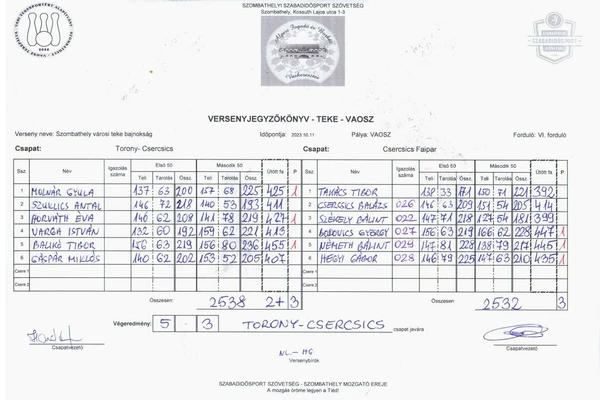 SZOMBATHELYI SZABADIDŐSPORT SZÖVETSÉG
Szombathely, Kossuth Lajos utca 1-3
VERSENYJEGYZŐKÖNYV - TEKE - VAOSZ
Verseny neve: Szombathely városi teke bajnokság Időpontja: 2023.10.11 Pálya: VAOSZ Forduló: VI. forduló
Csapat: Torony- Csercsics Csapat: Csercsics Faipar
Ssz. Név Igazolás száma Első 50 Második 50 Ütött fa P Ssz. Név Igazolás száma Első 50 Második 50 Ütött fa P
Teli Tarolás Össz. Teli Tarolás Össz. Teli Tarolás Össz. Teli Tarolás Össz.
1 MOLNÁR GYULA 137 63 200 157 68 225 425 1 1 TAKÁCS TIBOR 138 33 171 150 71 221 392
2 SZUKICS ANTAL 146 72 218 140 53 193 411 2 CSERCSICS BALÁZS 026 146 63 209 151 54 205 414
3 HORVÁTH ÉVA 146 62 208 141 78 219 427 1 3 SZÉKELY BÁLINT 022 147 71 218 127 54 181 399
4 VARGA ISTVÁN 132 60 192 159 62 221 413 4 BODOVICS GYÖRGY 027 156 63 219 166 62 228 447 1
5 BALIKÓ TIBOR 156 63 219 156 80 236 455 1 5 NÉMETH BÁLINT 029 147 81 228 138 79 217 445 1
6 GÁSPÁR MIKLÓS 140 62 202 153 52 205 407 6 HEGYI GÁBOR 028 146 79 225 147 63 210 435 1
Csere 1 Csere 1
Csere 2 Csere 2
Összesen: 2538 2+ 3 Összesen: 2532 3
Végeredmény: 5 . 3 TORONY-CSERCSICS csapat javára
Csapatvezető Csapatvezető
Versenybírók
SZABADIDŐSPORT SZÖVETSÉG - SZOMBATHELY MOZGATÓ EREJE
A mozgás öröme legyen a Tiéd!